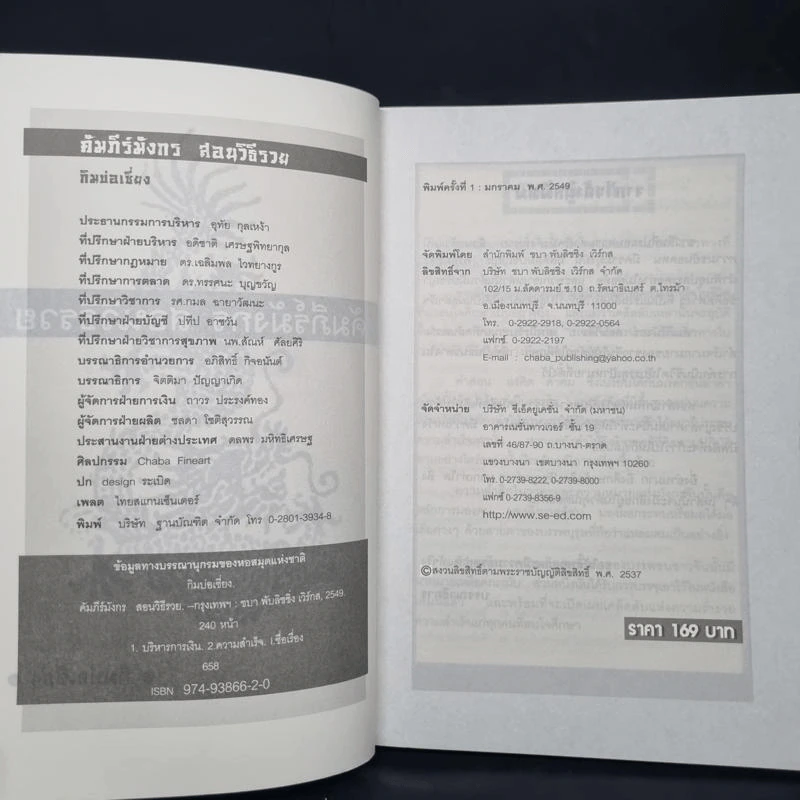 คัมภีร์มังกร สอนวิธีรวย
กิมบ่อเซี่ยง
ประธานกรรมการบริหาร อุทัย กุลเหง้า
ที่ปรึกษาฝ่ายบริหาร อดิชาติ เศรษฐพิทยากุล
ที่ปรึกษากฎหมาย ดร.เฉลิมพล ไวทยางกูร
ที่ปรึกษาการตลาด ดร.ทรรศนะ บุญขวัญ
ที่ปรึกษาวิชาการ รศ.กมล ฉายาวัฒนะ
ที่ปรึกษาฝ่ายบัญชี ปทีป อาชวัน
ที่ปรึกษาฝ่ายวิชาการสุขภาพ นพ.สัณห์ ศัลยศิริ
บรรณาธิการอำนวยการ อภิสิทธิ์ กิจอนันต์
บรรณาธิการ จิตติมา ปัญญาเกิด
ผู้จัดการฝ่ายการเงิน ถาวร ประรงค์ทอง
ผู้จัดการฝ่ายผลิต ชลดา โชติสุวรรณ
ประสานงานฝ่ายต่างประเทศ ดลพร มหิทธิเศรษฐ
ศิลปกรรม Chaba Fineart
ปก design ระเบิด
เพลต ไทยสแกนเซ็นเตอร์
พิมพ์ บริษัท ฐานบัณฑิต จำกัด โทร 0-2801-3934-8
ข้อมูลทางบรรณานุกรมของหอสมุดแห่งชาติ
กิมบ่อเซี่ยง.
คัมภีร์มังกร สอนวิธีรวย. –กรุงเทพฯ : ชบา พับลิชชิ่ง เวิร์กส, 2549.
240 หน้า
1. บริหารการเงิน. 2.ความสำเร็จ. I.ชื่อเรื่อง
658
ISBN 974-93866-2-0
พิมพ์ครั้งที่ 1 : มกราคม พ.ศ. 2549
จัดพิมพ์โดย สำนักพิมพ์ ชบา พับลิชชิ่ง เวิร์กส
ลิขสิทธิ์จาก บริษัท ชบา พับลิชชิ่ง เวิร์กส จำกัด
102/15 ม.ลัดดารมย์ ซ.10 ถ.รัตนาธิเบศร์ ต.ไทรม้า
อ.เมืองนนทบุรี จ.นนทบุรี 11000
โทร. 0-2922-2918, 0-2922-0564
แฟกซ์ 0-2922-2197
E-mail : chaba_publishing@yahoo.co.th
จัดจำหน่าย บริษัท ซีเอ็ดยูเคชั่น จำกัด (มหาชน)
อาคารเนชั่นทาวเวอร์ ชั้น 19
เลขที่ 46/87-90 ถ.บางนา-ตราด
แขวงบางนา เขตบางนา กรุงเทพฯ 10260
โทร. 0-2739-8222, 0-2739-8000
แฟกซ์ 0-2739-8356-9
http://www.se-ed.com
©สงวนลิขสิทธิ์ตามพระราชบัญญัติลิขสิทธิ์ พ.ศ. 2537
ราคา 169 บาท